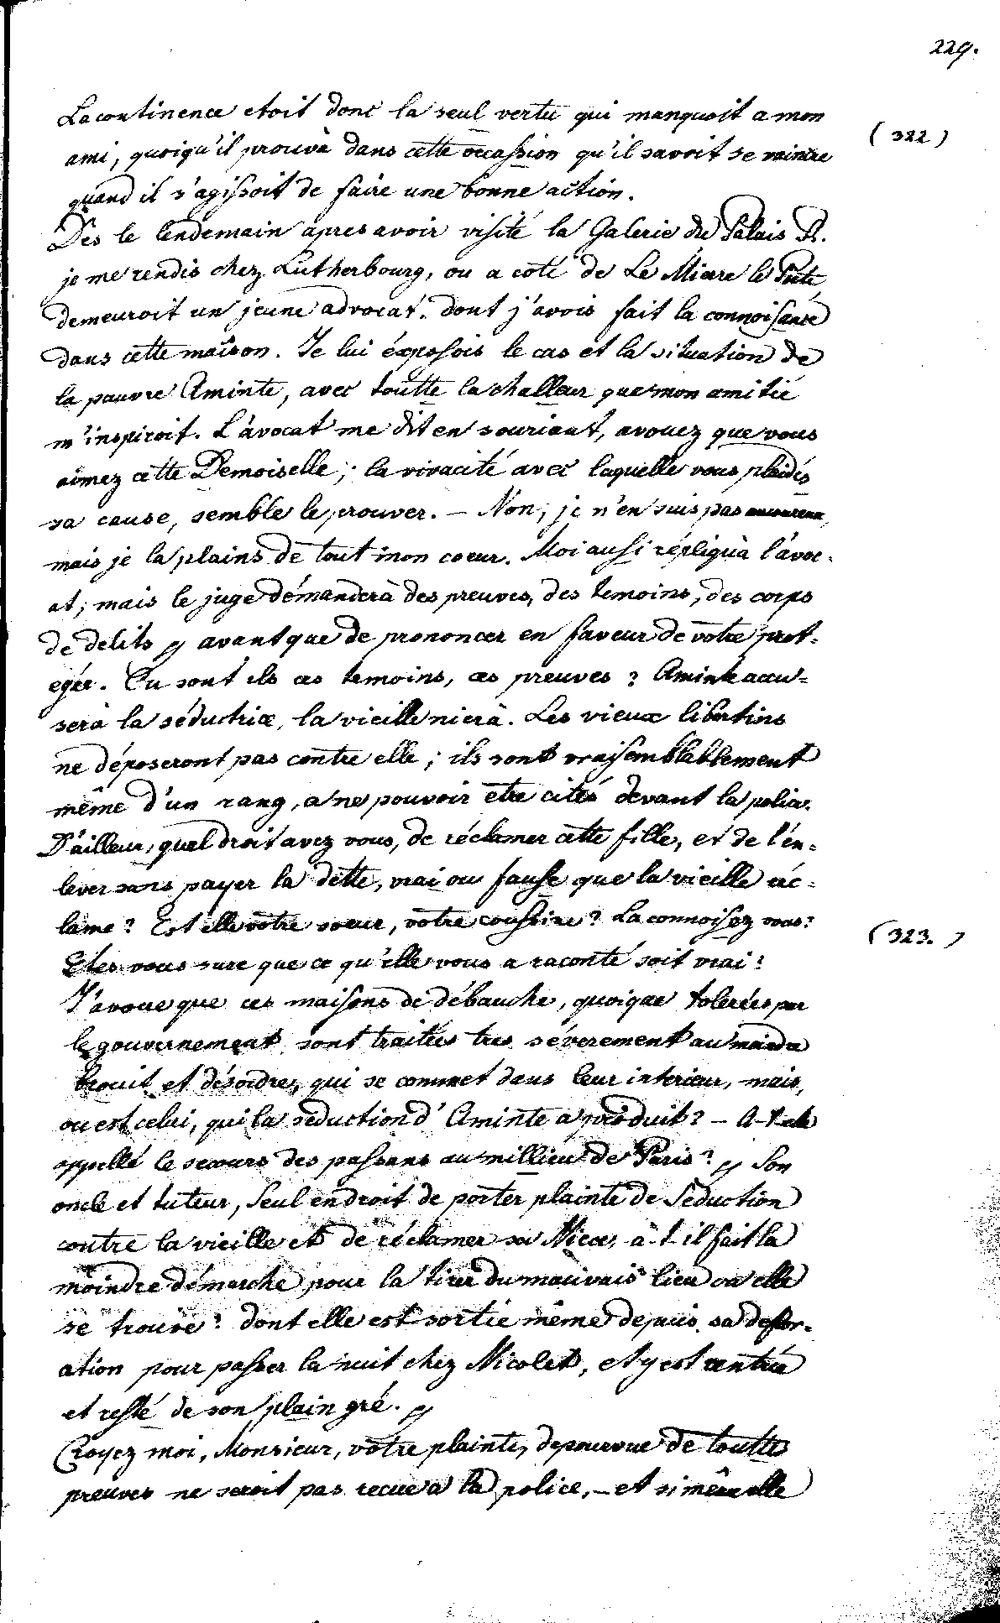 229.
La continence etoit donc la seul vertu qui manquoit a mon
(322)
ami, quoiqu'il prouvà dans cette occassion qu'il savoit se vaincre
quand il s'agissoit de faire une bonne action.
Dès le lendemain apres avoir visité la Galerie du Palais R.
je me rendis chez Lutherbourg, ou a coté de Le Miere le Poete
demeuroit un jeune advocat. dont j'avois fait la connoisance
dans cette maison. Je lui éxposois le cas et la situation de
la pauvre Aminte, avec toutte la challeur que mon amitié
m'inspiroit. L'avocat me dit en souriant, avouez que vous
aimez cette Demoiselle; la vivacité avec laquelle vous plaidés
sa cause, semble le prouver. – Non, je n'en suis pas amoureux,
mais je la plains de tout mon coeur. Moi aussi répliquà l'avoc-
at; mais le juge démanderà des preuves, des temoins, des corps
de delits avant que de prononcer en faveur de votre prot=
egée. Ou sont ils ces temoins, ces preuves? Aminte accu=
serà la séductrice, la vieille nierà. Les vieux libertins
ne déposeront pas contre elle; ils sont vraisemblablement
même d'un rang, a ne pouvoir etre cités devant la police.
D'ailleur, quel droit avez vous, de réclamer cette fille, et de l'én-
lever sans payer la dette, vrai ou fausse que la vieille réc=
lame? Est elle votre soeur, votre coussine? La connoisez vous?
(323.)
Etes vous sure que ce qu'elle vous a raconté soit vrai?
J'avoue que ces maisons de débauche, quoique tolerées par
le gouvernement sont traitées tres séverement au moindre
brouit et désordre, qui se commet dans leur interieur, mais,
ou est celui, qui la séduction d'Aminte a produit? – A-t-elle
appellé le secours des passans au millieu de Paris? Son
oncle et tuteur, seul en droit de porter plainte de séduction
contre la vieille et de réclamer sa Niece, a-t-il fait la
moindre démarche pour la tirer du mauvais lieu ou elle
se trouve? dont elle est sortie même depuis sa deflor-
ation pour passer la nuit chez Nicolet, et y est rentrée
et resté de son plain gré.
Croyez moi, Monsieur, votre plainte, depourvue de toutte
preuves ne seroit pas recue a la police, – et si même elle